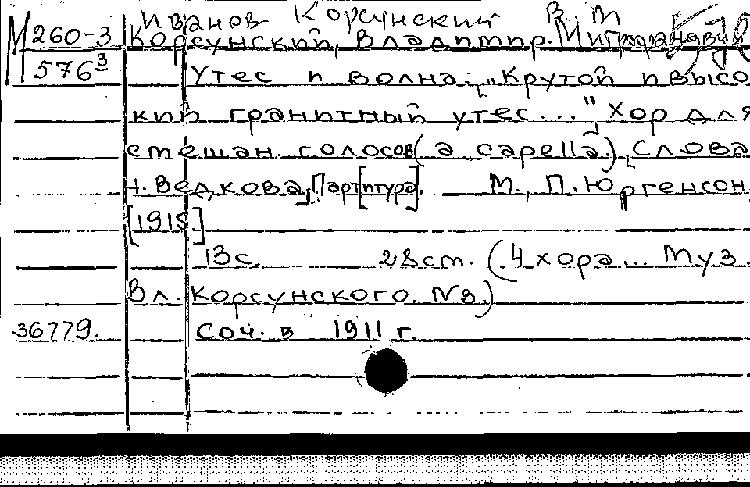 Иванов Корсунский В. М
М260-3 Корсунский, Владимир.
576³ Утес и волна: „Крутой и высо
кий гранитный утес..." Хор для
смешан. голосов (a capella). Слова
Н. Ведкова, Парт[итура]. М., П. Юргенсон,
[1915]
13с. 28ст. (4 хора... Муз.
Вл. Корсунского. №3.)
36779. Соч. в 1911 г.